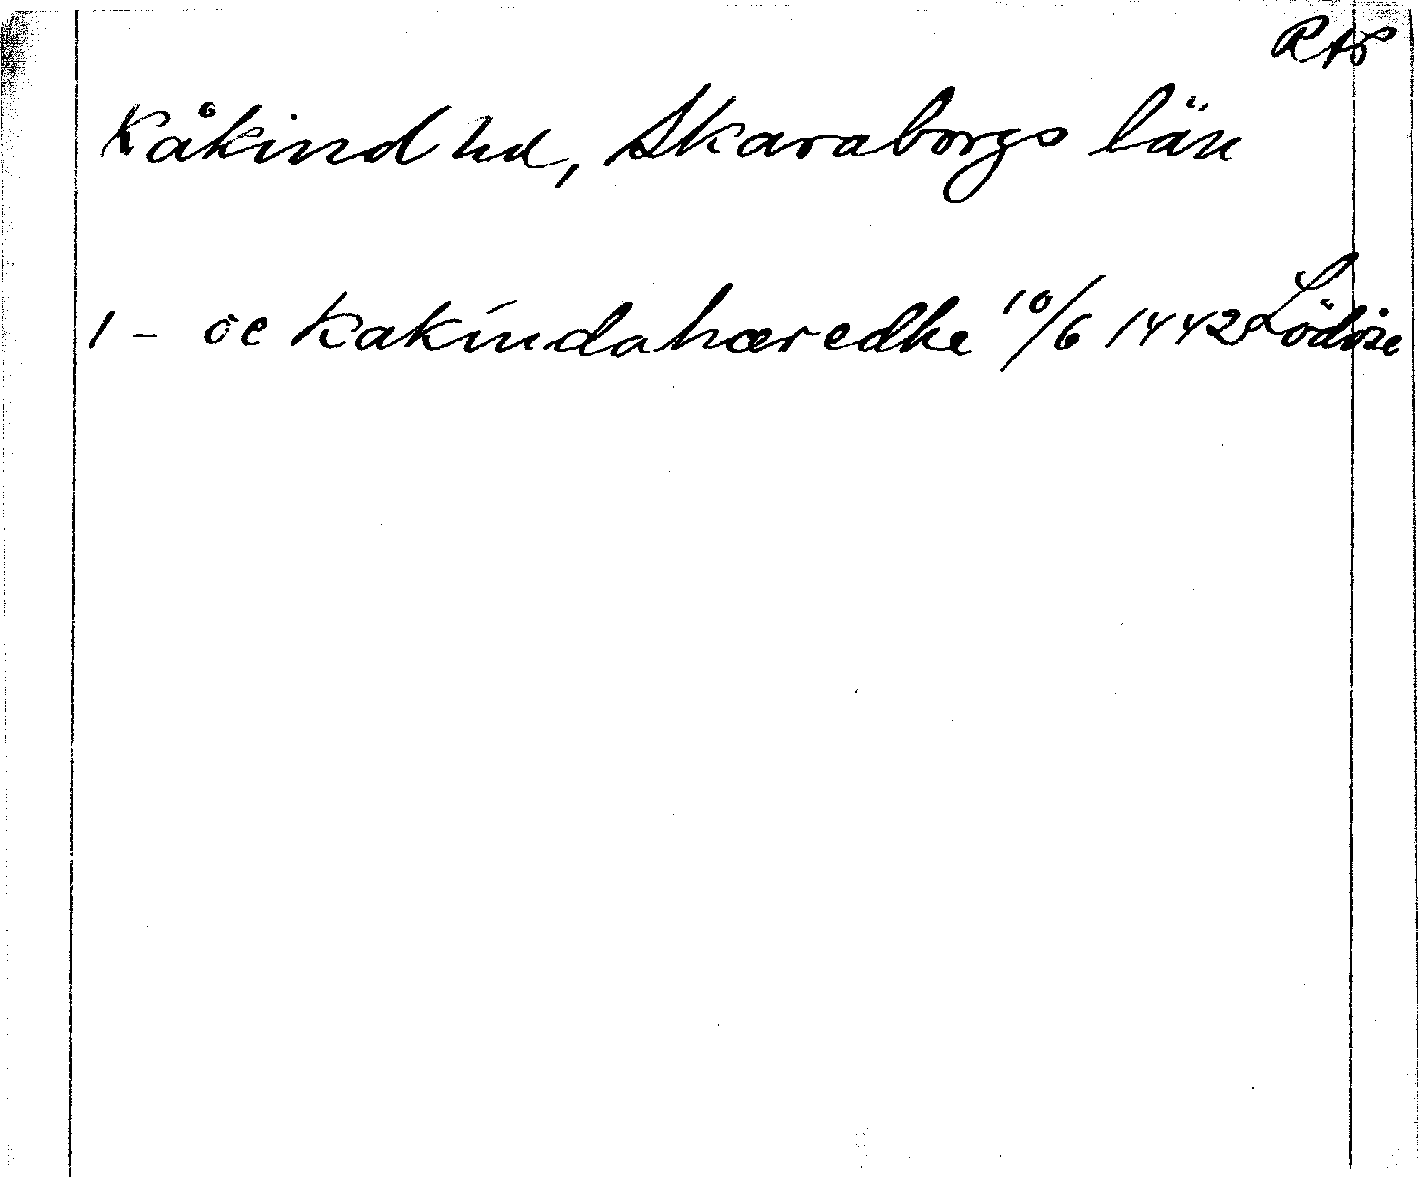 RAP
Kåkind hd, Skaraborgs län
1 - oc Kakíndahæredhe 10/6 1442 Lödöse